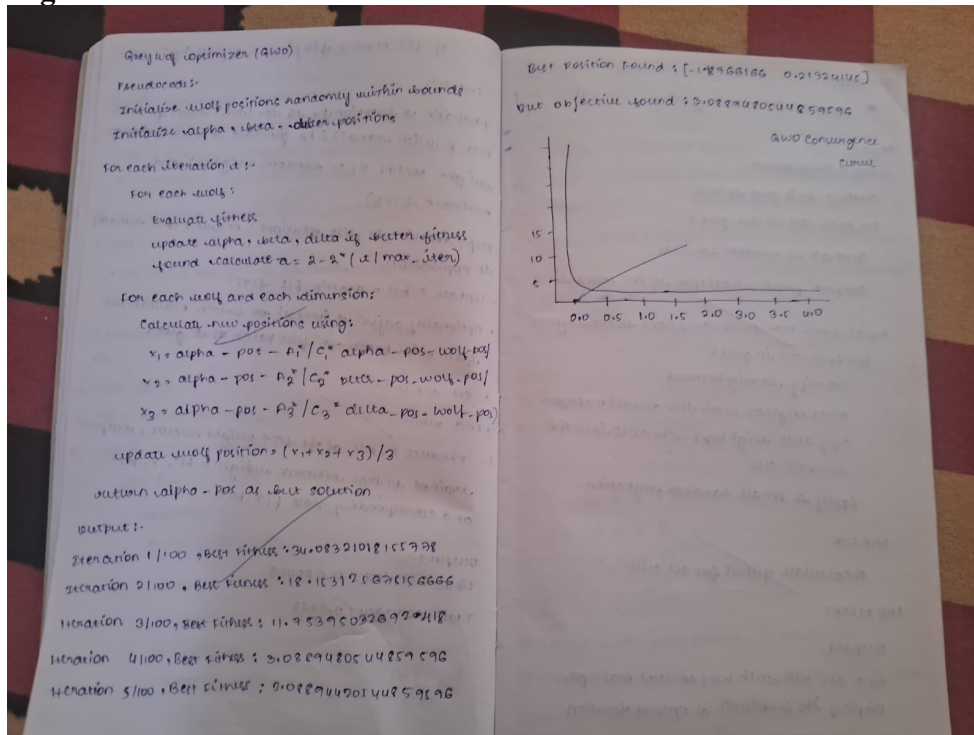 Grey wolf optimizer (GWO)
Pseudocode:-
Initialize wolf positions randomly within bounds
Initialize alpha, beta, delta positions
For each iteration t:-
For each wolf:
Evaluate fitness
update alpha, beta, delta if better fitness
found calculate a = 2-2*(t/max_iter)
For each wolf and each dimension:
Calculate new positions using:
x1 = alpha - pos - A1*/C1* alpha-pos-wolf-pos/
x2 = alpha - pos - A2*/C2* beta-pos-wolf-pos/
x3 = alpha-pos - A3*/C3* delta-pos-wolf-pos)
update wolf position = (x1+x2+x3)/3
return alpha-pos as best solution
output:-
Iteration 1/100, Best Fitness: 34.08321018155778
Iteration 2/100, Best Fitness:
Iteration 3/100, Best Fitness:
Iteration 4/100, Best Fitness: 3.0889480544859596
Iteration 5/100, Best Fitness:
Best Position Found: [-1.8766166 0.21324145]
Best objective found: 3.0889480544859596
GWO Convergence
curve
15
10
5
0.0 0.5 1.0 1.5 2.0 3.0 3.5 4.0